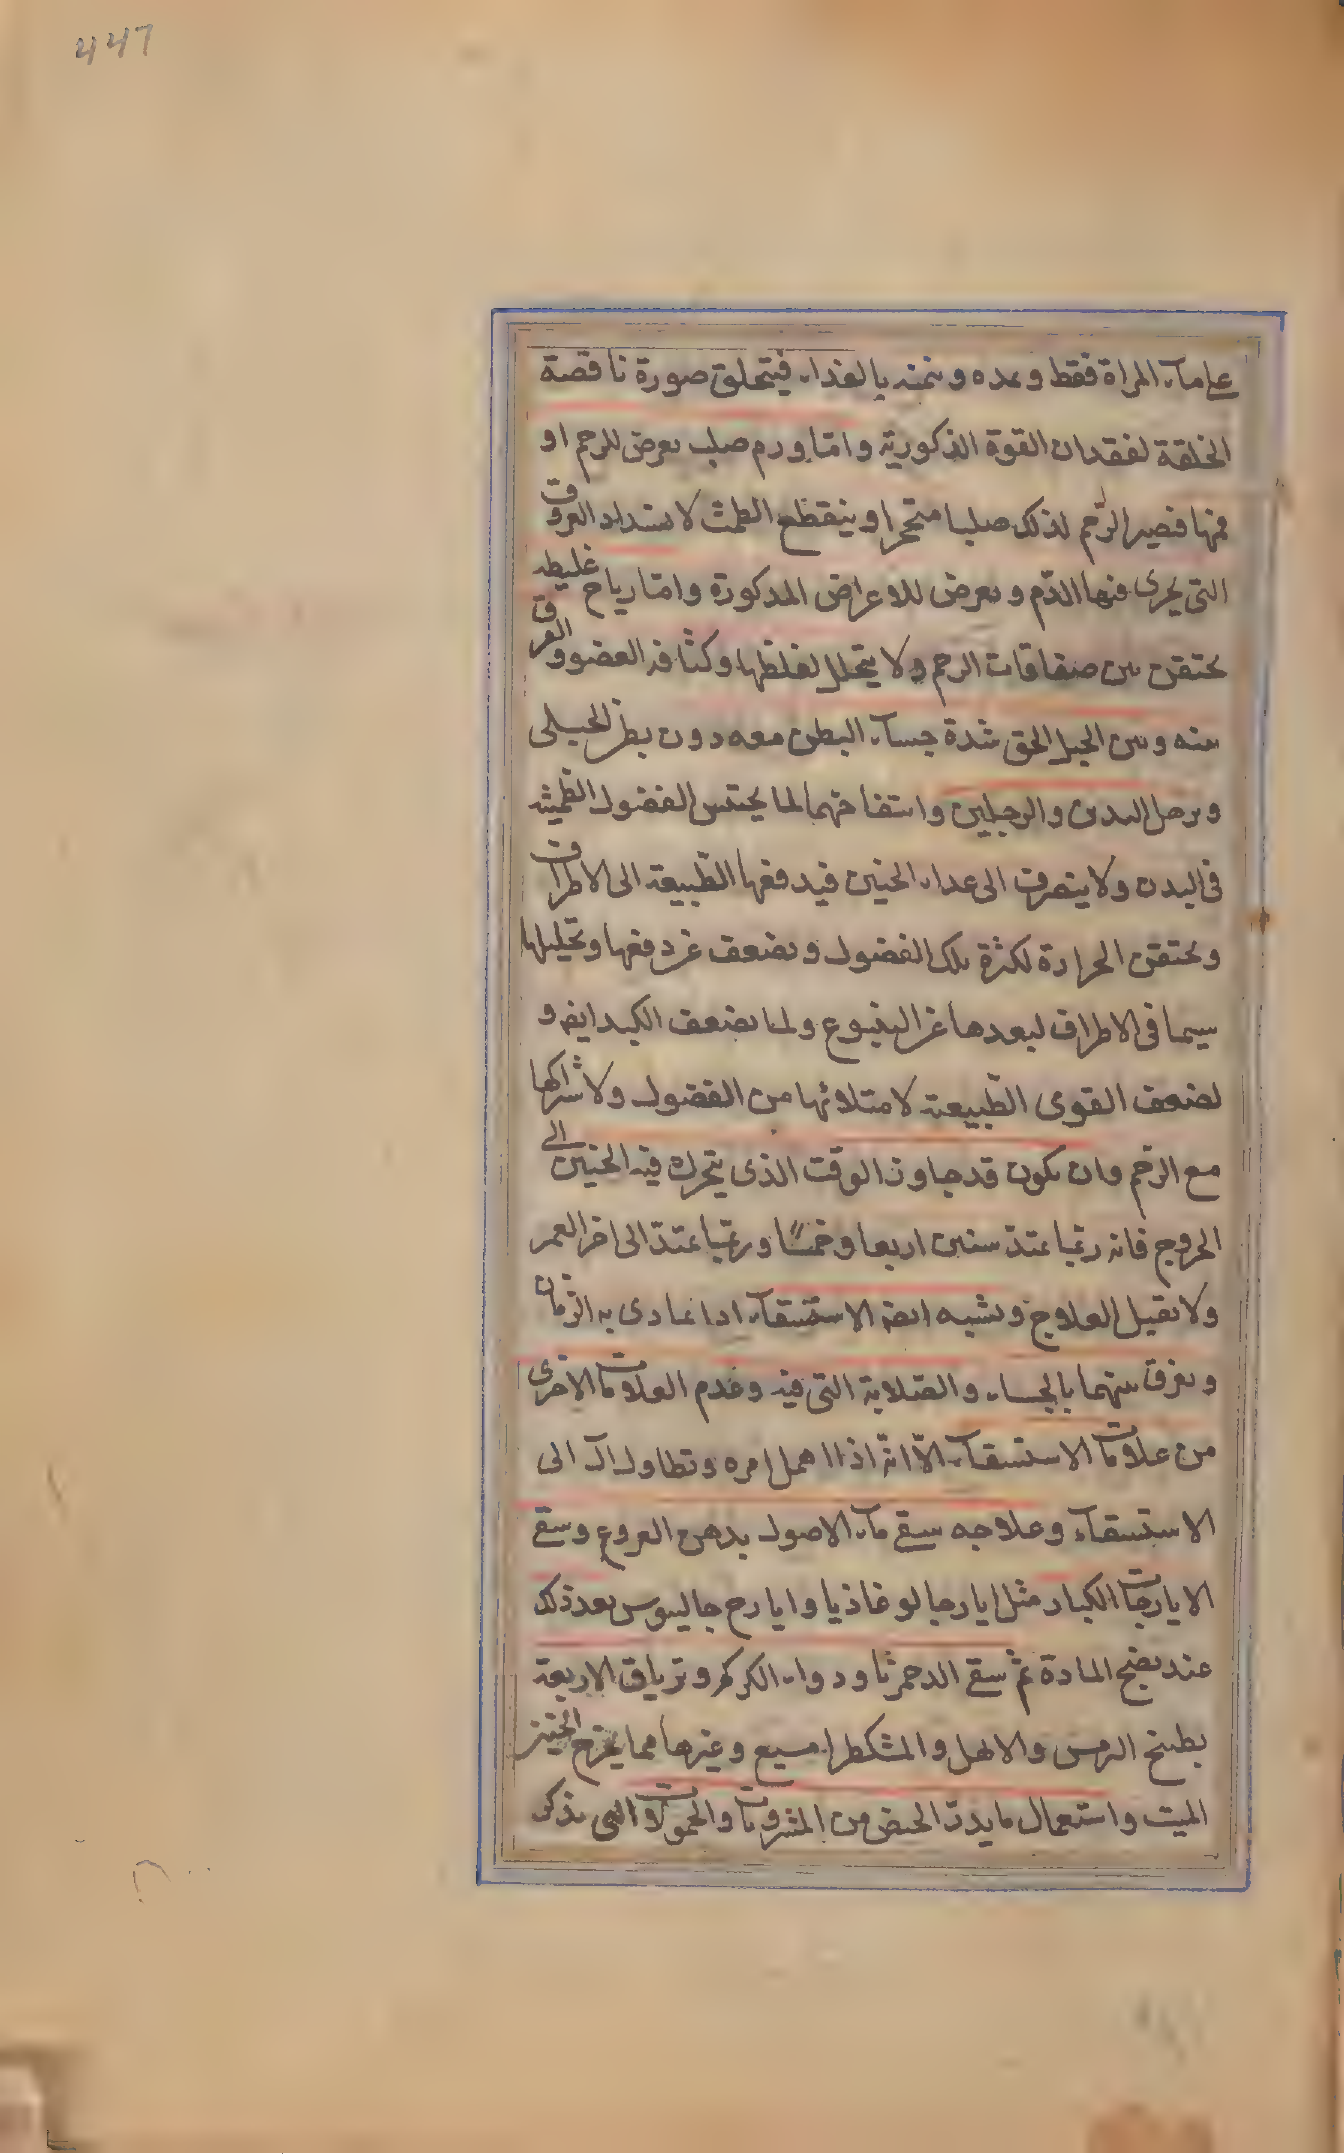 447
على ماء المراة فقط وعده وينميه بالغذاء فيتخلق صورة ناقصة
الخلقة لفقدان القوة الذكورية واما ورم صلب يعرض للرحم او
فمها فيصير الرحم لذلك صلبا متحجرا وينقطع الطمث لانسداد العروق
التى يجرى فيها الدم ويعرض للاعراض المذكورة واما رياح غليظه
تحتقن بين صفاقات الرحم ولا يتحلل لغلظها وكثافه العضو والفرق
بينه وبين الحبل الحق شدة جساء البطن معه دون بطن الحبلى
وترهل اليدين والرجلين وانتفاخهما لما يحتبس الفضول الطمثيه
فى البدن ولا ينصرف الى غداء الجنين فيدفعها الطبيعة الى الاطراف
ويحتقن الحرارة لكثرة تلك الفضول ويضعف عن دفعها وتحليلها
سيما فى الاطراف لبعدها عن الينبوع ولما يضعف الكبد ايضا و
لضعف القوى الطبيعة لامتلائها من الفضول ولاشتراكها
مع الرحم وان يكون قد جاوز الوقت الذى يتحرك فيه الجنين الى
الخروج فانه ربما يمتد سنين اربعا وخمسا وربما يمتد الى اخر العمر
ولا يقبل العلاج ويشبه ايضا الاستسقاء اذا تمادى به الزمان
ويفرق بينهما بالجساء والصلابة التى فيه وعدم العلامات الاخرى
من علامات الاستسقاء الا انه اذا اهمل امره وتطاول ال الى
الاستسقاء وعلاجه سقى ماء الاصول بدهن الخروع وسقى
الايارجات الكبار مثل ايارجا لوغاذيا وايارج جالينوس بعد ذلك
عند نضج المادة ثم سقى الدحمرثا ودواء الكركم وترياق الاربعة
بطبيخ الترمس والابهل والمشكطرامسيع وغيرها مما يخرج الجنين
الميت واستعمال ما يدر الحيض من المشروبات والحمولات التى نذكر